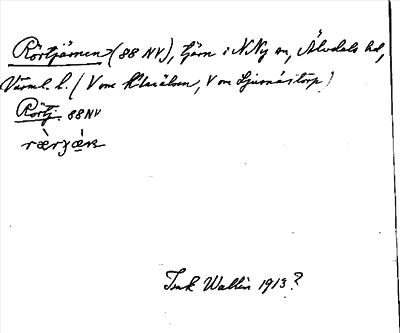 Rörtjärnen (88 NV), tjärn i N Ny sn, Älvdals hd,
Värml. l. (V om Klarälven, V om Ljusnästorp)
Rörtj. 88 NV
Ink Wallin 1913?